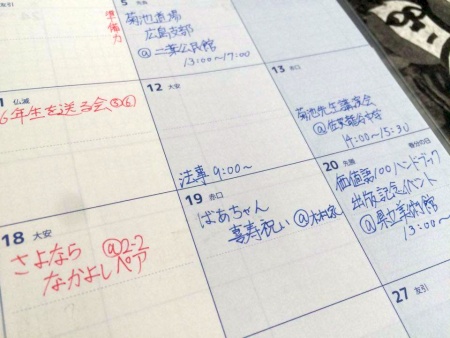 友引
準備力
5 先勝
菊池道場
広島支部
@二葉公民館
13:00〜17:00
1 仏滅
6年生を送る会⑤⑥
12 大安
法事 9:00〜
13 赤口
菊池先生講演会
14:00〜15:30
18 大安
さよなら @2-2
なかよしペア
19 赤口
ばあちゃん
喜寿祝い
20 先勝 春分の日
価値語100ハンドブック
出版記念イベント
@県立美術館
13:00〜
27 友引